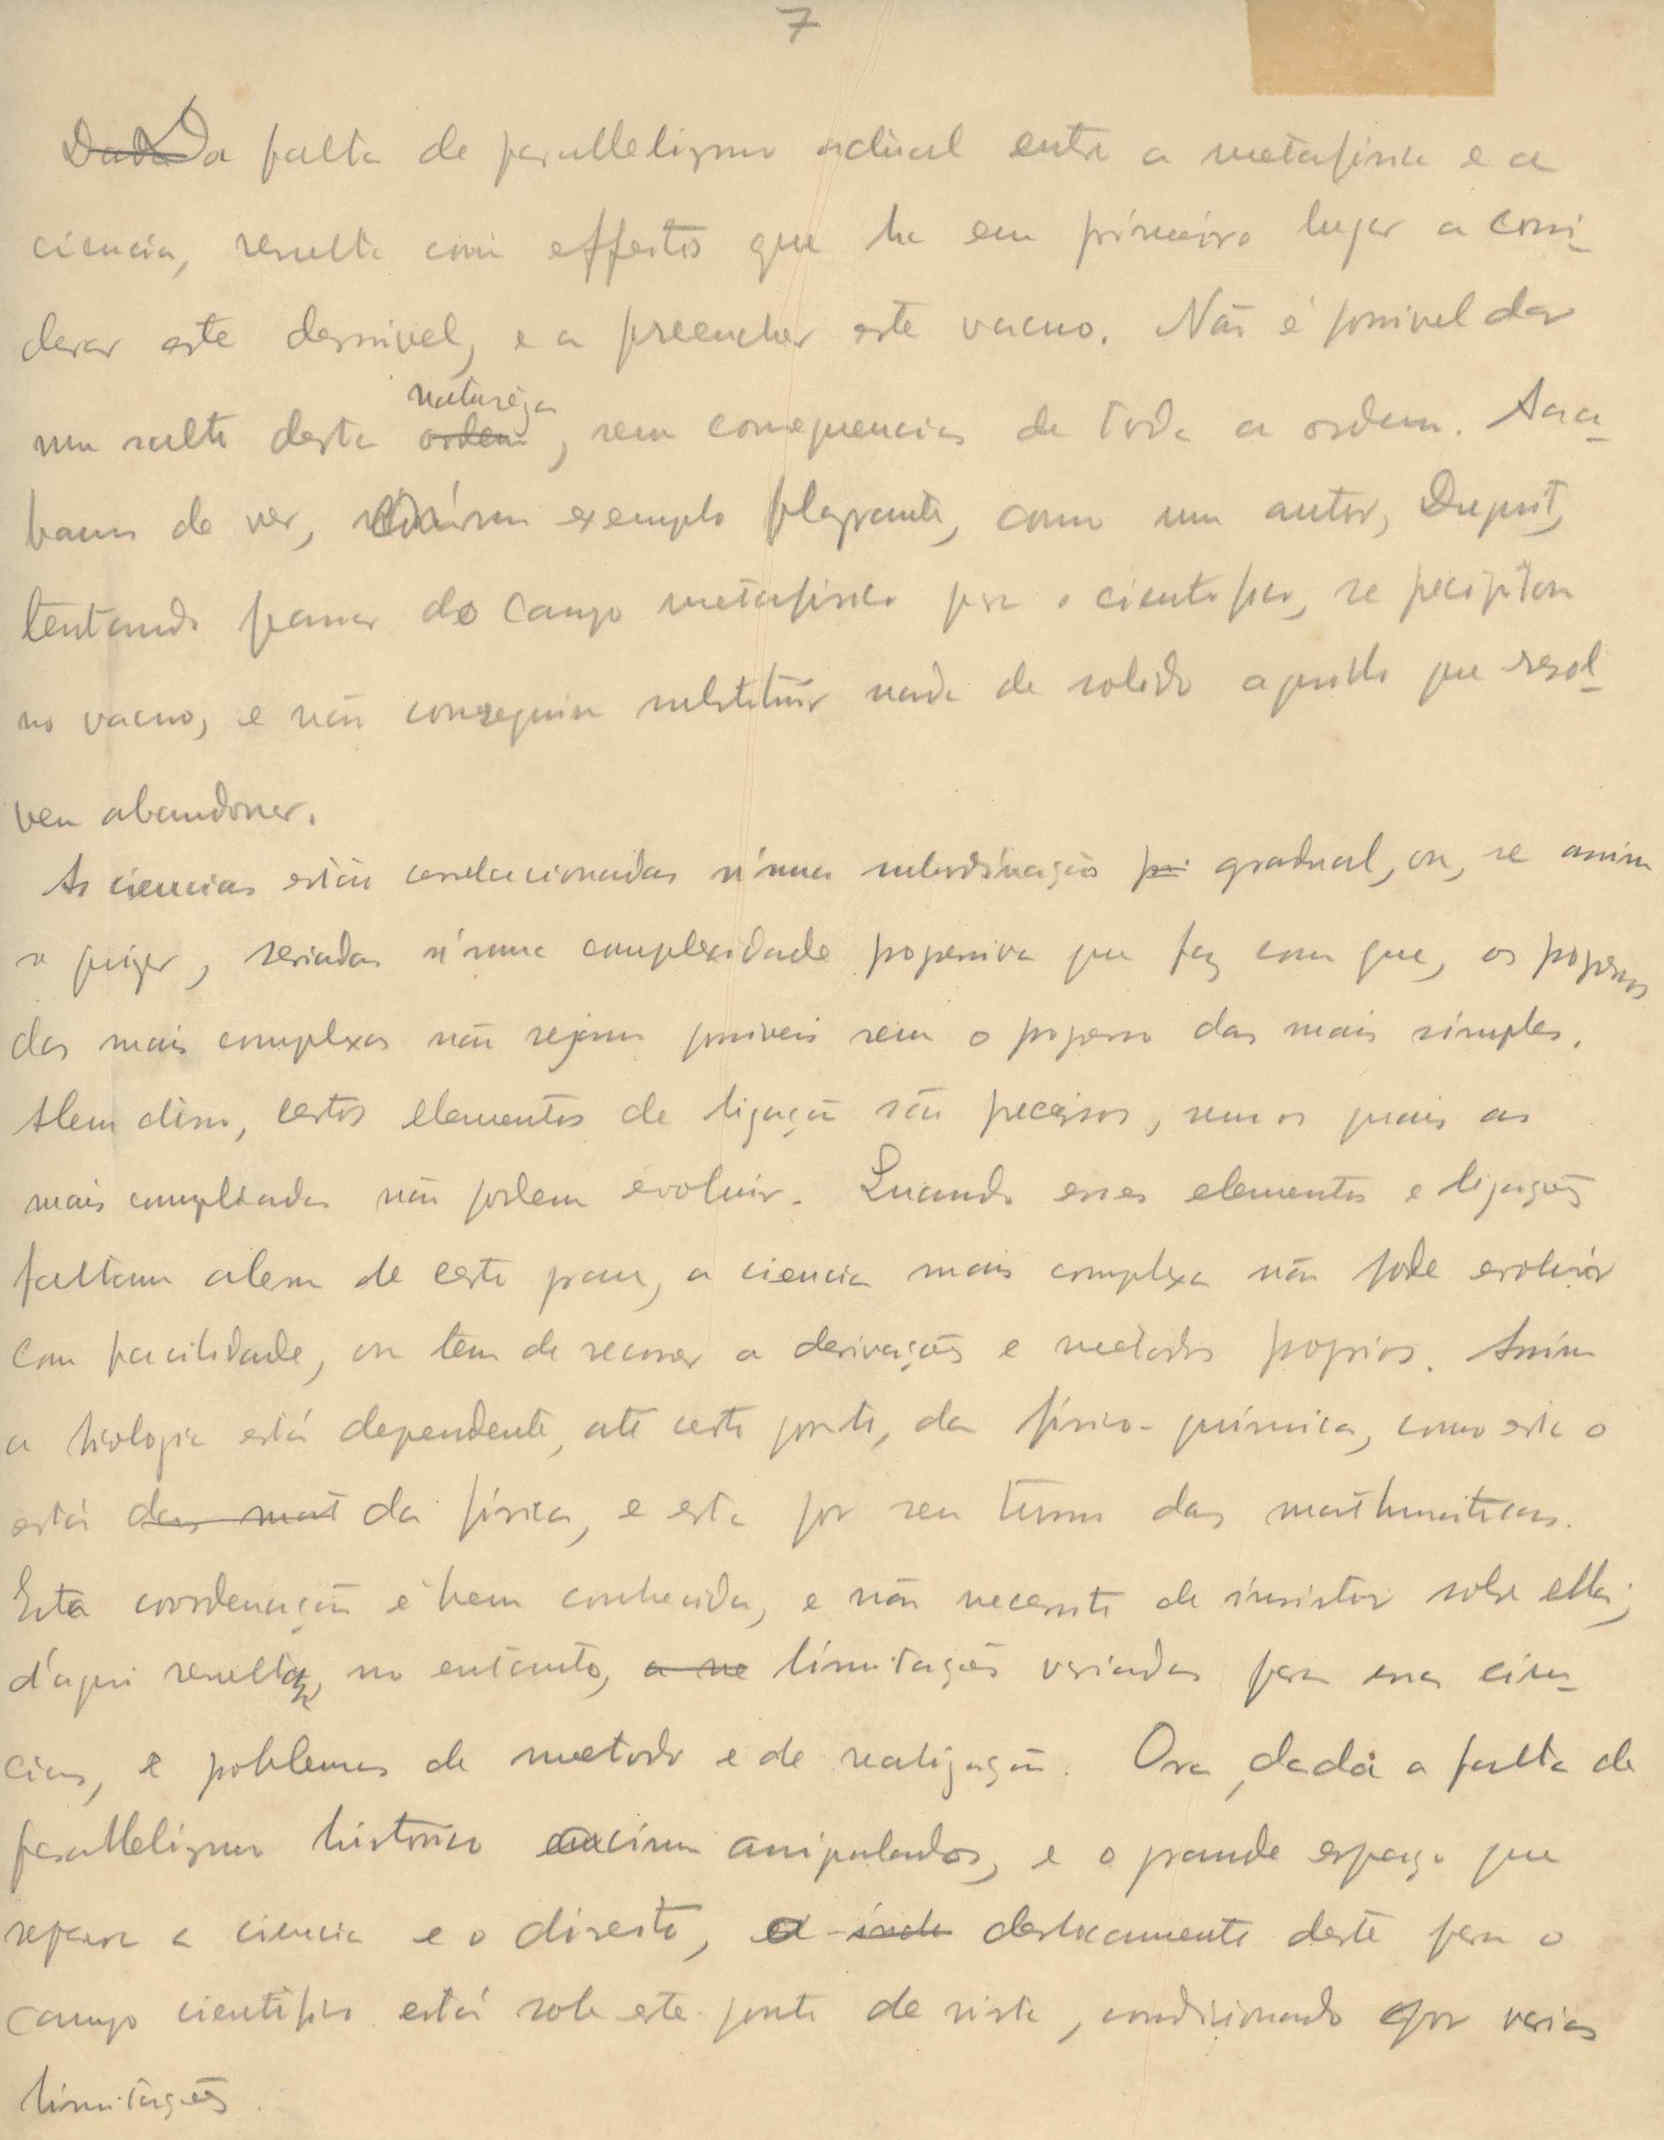 7
Dada Da falta de parallelismo actual entre a metafisica e a
ciencia, resulta com effeito que ha em primeiro lugar a consi-
derar este desnivel, e a preencher este vacuo. Não é possivel dar
um salto desta ordem natureza, sem consequencias de toda a ordem. Aca-
bamos de ver, n'um exemplo flagrante, como um autor, Duguit,
tentando passar do campo metafisico para o cientifico, se precipitou
no vacuo, e não conseguiu substituir nada de solido aquillo que resol-
veu abandonar.
As ciencias estão correlacionadas n'uma subordinação gradual, ou, se assim
o quizer, seriadas n'uma complexidade progressiva que faz com que, os progressos
das mais complexas não sejam possiveis sem o progresso das mais simples.
Alem disso, certos elementos de ligação são precisos, sem os quais as
mais complicadas não podem evoluir. Quando esses elementos e ligações
faltam alem de certo grau, a ciencia mais complexa não pode evoluir
com facilidade, ou tem de recorrer a derivações e metodos proprios. Assim
a biologia está dependente, até certo ponto, da físico-química, como esta o
está das mat da física, e esta por seu turno das mathematicas.
Esta coordenação é bem conhecida, e não necessito de insistir sobre ella;
d'aqui resultam, no entanto, a ne limitações variadas para essas cien-
cias, e problemas de metodo e de realização. Ora, dada a falta de
parallelismo histórico acima assignalados, e o grande espaço que
separa a ciencia e o direito, o deslocamento deste para o
campo cientifico está sob este ponto de vista, condicionado por varias
limitações.